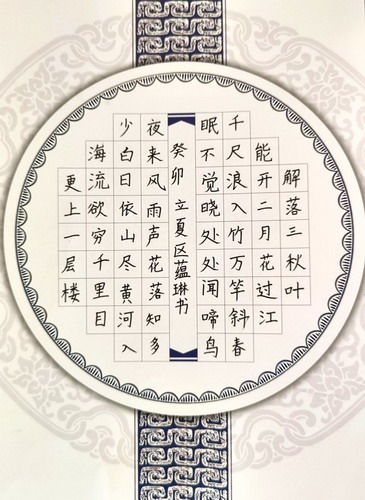 解落三秋叶
能开二月花过江
千尺浪入竹万竿斜春
眠不觉晓处处闻啼鸟
癸卯 立夏区蕴琳书
夜来风雨声花落知多
少白日依山尽黄河入
海流欲穷千里目
更上一层楼